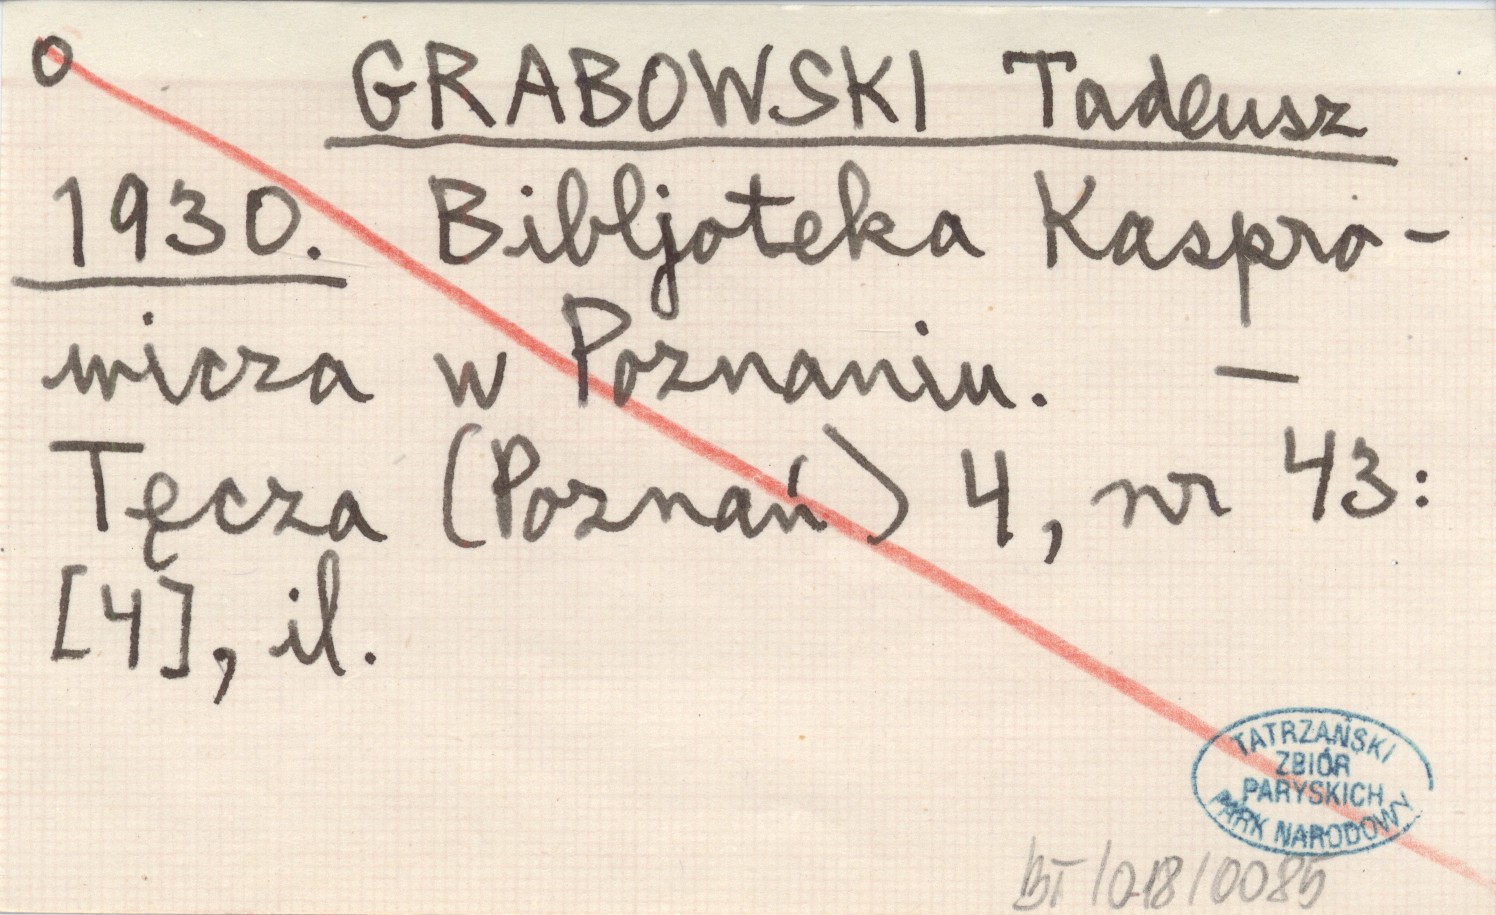 o GRABOWSKI Tadeusz
1930. Bibljoteka Kaspro-
wicza w Poznaniu. —
Tęcza (Poznań) 4, nr 43:
[4], il.
TATRZAŃSKI
ZBIÓR
PARYSKICH
PARK NARODOWY
BT/018/0085